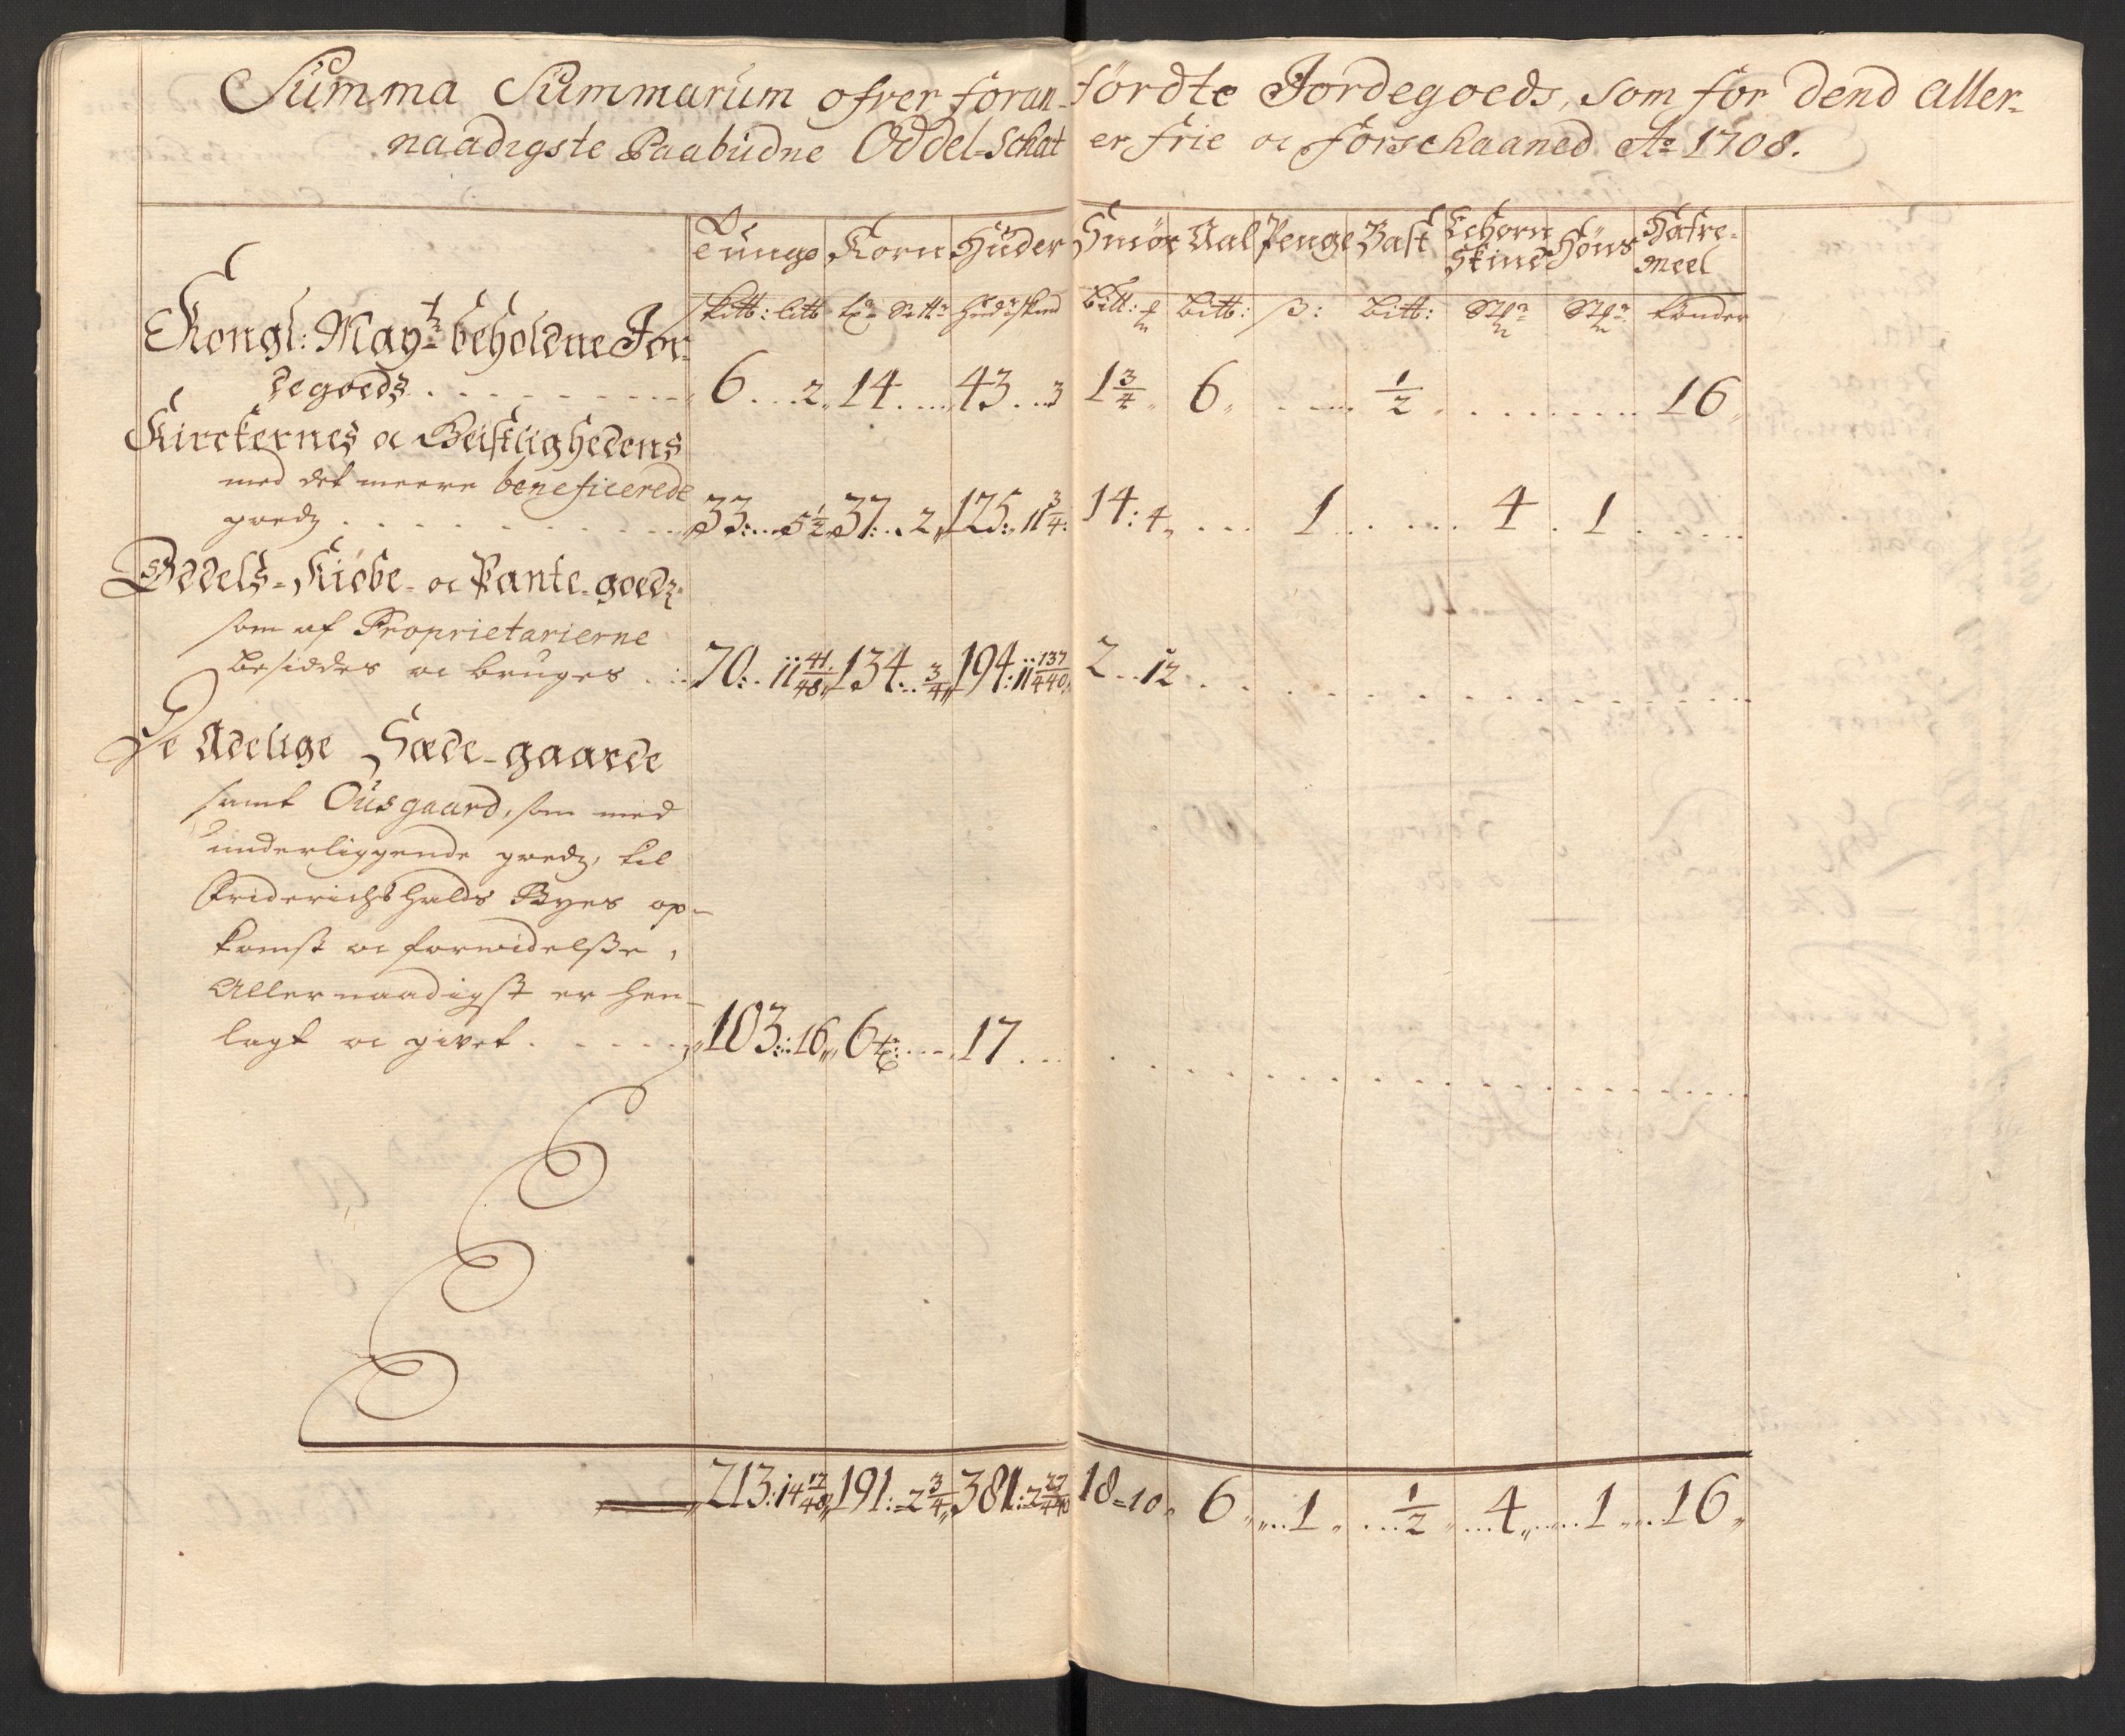 Summa Summarum ofver foran-førdte Jordegoeds, som for dend Aller-
naadigste Paabudne Oddel-Schat er frie oc forschaaned Ao 1708.
Tunge Korn Huder Smør Aal Penge Bast Echorn Skind Höns Hafre-Meel
skitt: litt tr Sett Hud: skind bitt: bitt: ß: bitt: Sth: Sth: tønder
Kongl: Maytz beholdne Jor-
degoeds . . . 6 . . . 2 14 . . . 43 . . 3 1 3/4 6 . . . 1/2 . . . 16
Kirckernes oc Geistlighedens
med det meere beneficerede
goedz . . . 33: . . 5 1/2 37: . . 2 125: 11 3/4 14: 4 . . . 1 . . . 4 . 1 . . .
Oddels-Kiöbe- oc Pante-goedz
som af Proprietarierne
besiddes oc bruges . . 70: . 11 41/48 134 . . 3/4 194: 11 137/440 2 . . 12 . . .
De Adelige Sæde-gaarde
samt Ousgaard, som med
underliggende goedz, til
Friderichshalds Byes op-
komst oc forvidelsse,
Allernaadigst er hen-
lagt oc givet . . . 103: 16 6 tr: . . . 17 . . .
213: 14 17/48 191: 2 3/4 381: 2 27/440 18 = 10 6 1 1/2 4 1 16